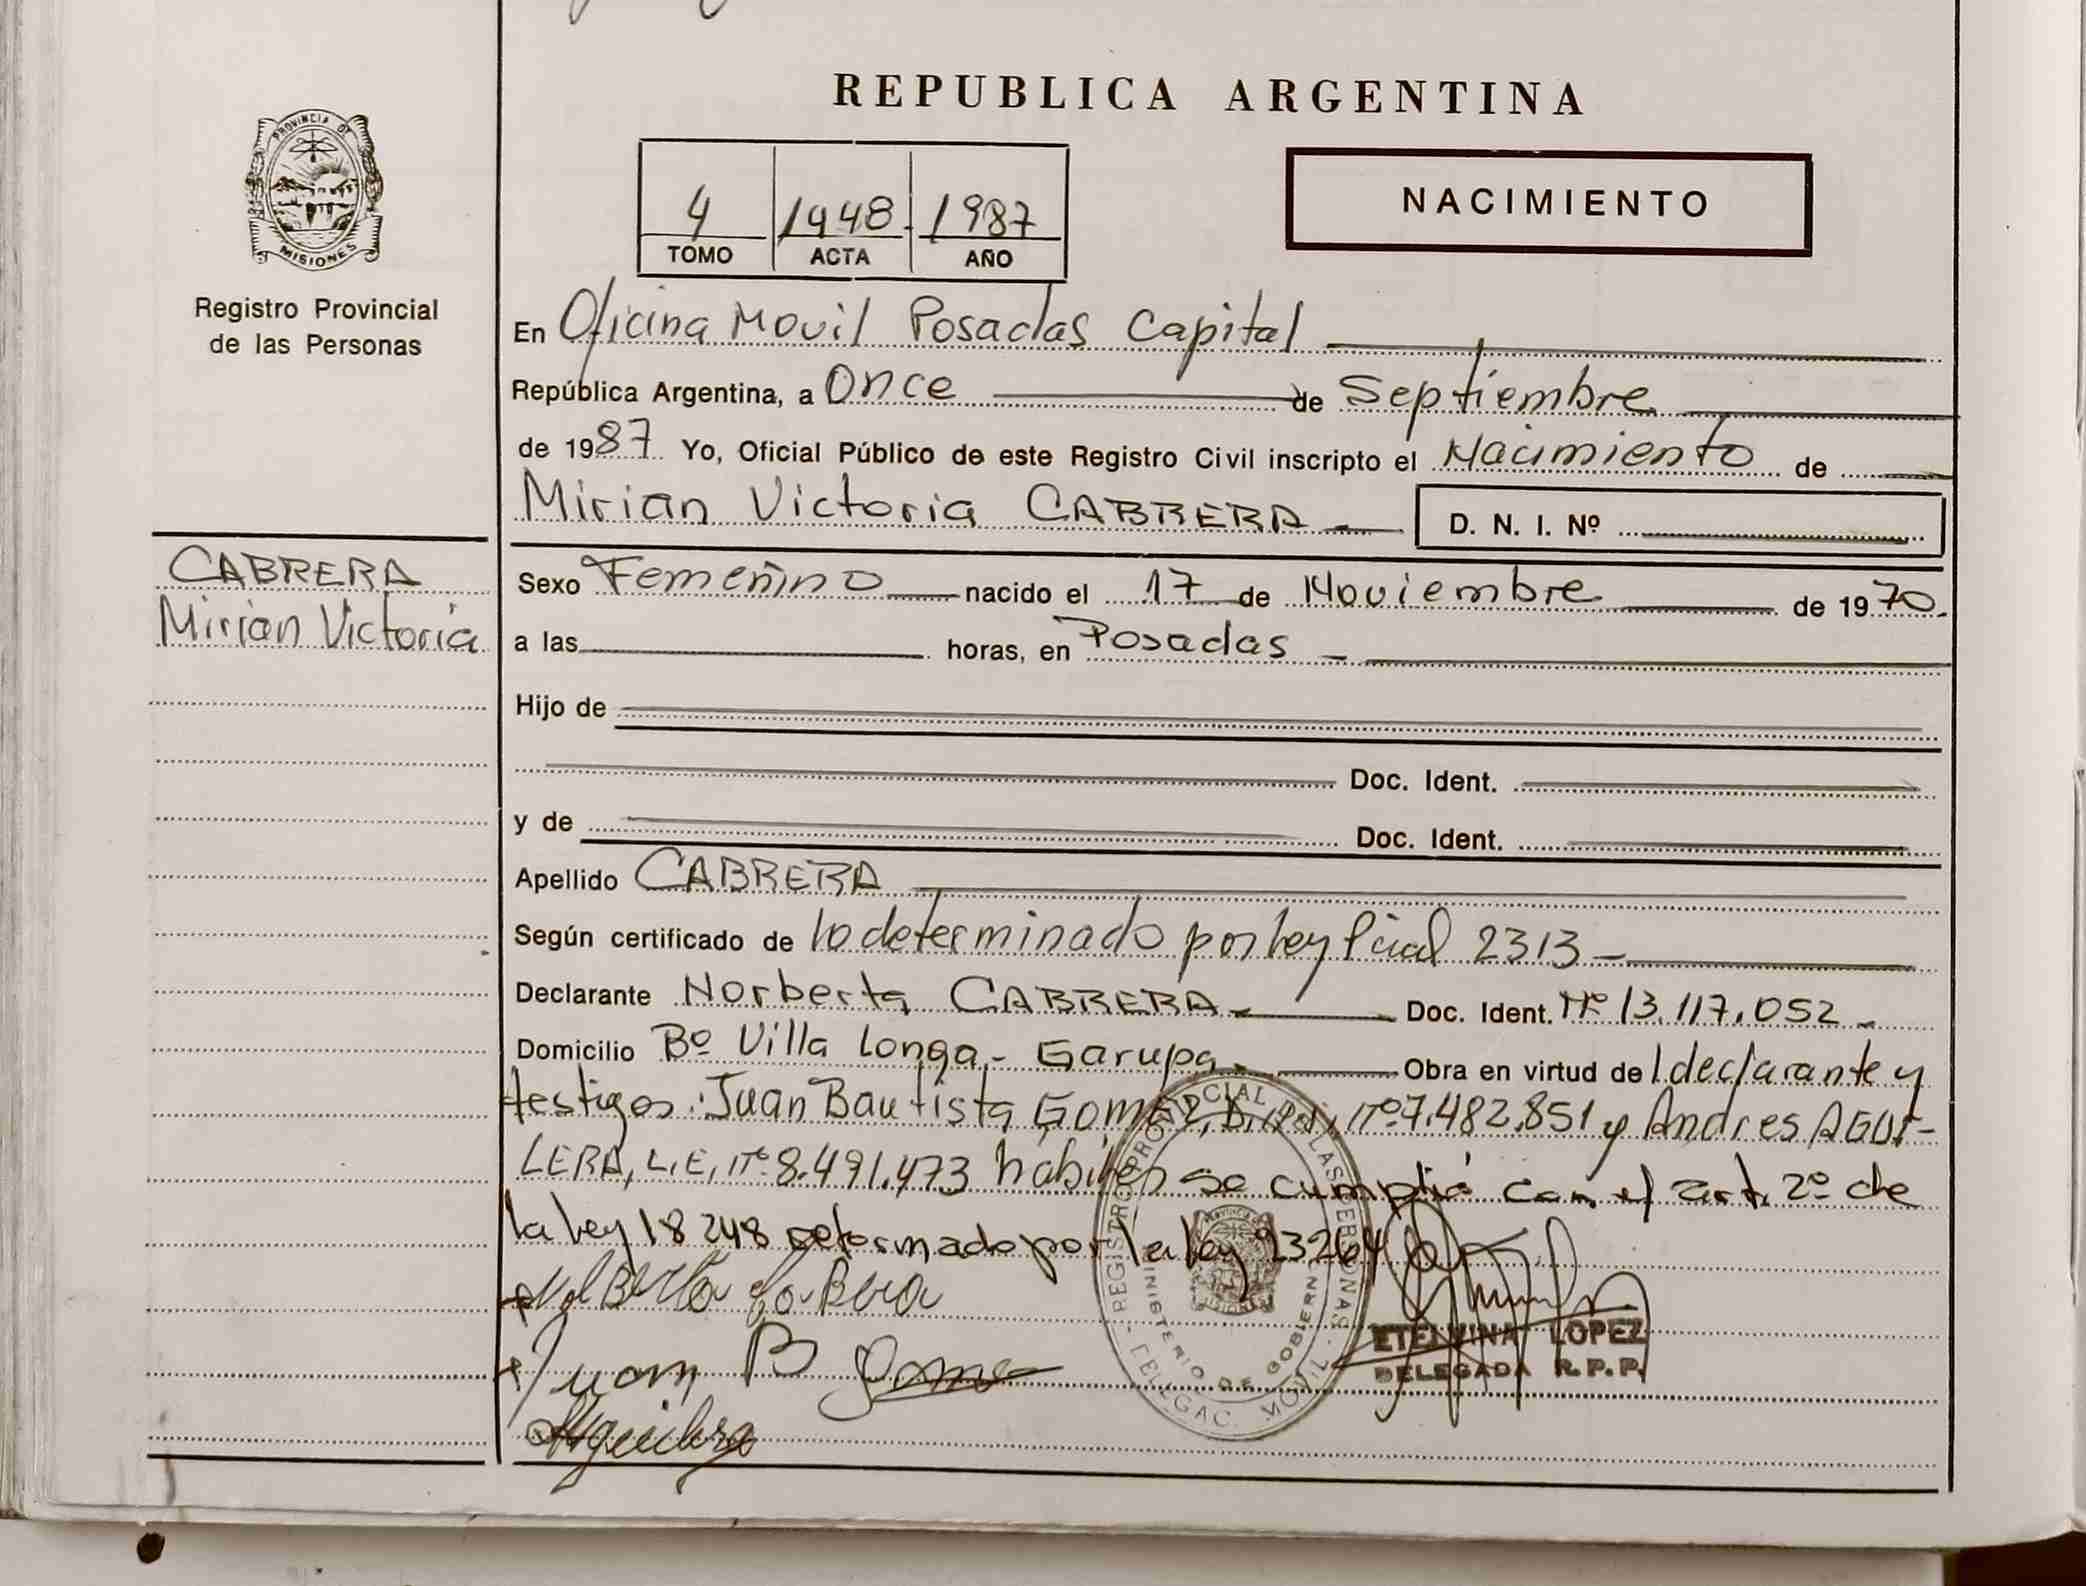 REPUBLICA ARGENTINA
PROVINCIA DE
MISIONES
Registro Provincial
de las Personas
4 1448 1987
TOMO ACTA AÑO
NACIMIENTO
En Oficina Movil Posadas Capital
República Argentina, a Once de Septiembre
de 1987 Yo, Oficial Público de este Registro Civil inscripto el Nacimiento de
Mirian Victoria CABRERA D. N. I. Nº
CABRERA
Mirian Victoria
Sexo Femenino nacido el 17 de Noviembre de 1970
a las horas, en Posadas
Hijo de
Doc. Ident.
y de Doc. Ident.
Apellido CABRERA
Según certificado de lo determinado por ley Pcial 2313
Declarante Norberta CABRERA Doc. Ident. Nº 13.117.052
Domicilio Bº Villa Longa - Garupa Obra en virtud del declarante y
testigos: Juan Bautista GOMEZ, D.N.I. Nº 7.482.851 y Andres AGUI-
LERA, L.E. Nº 8.491.473 habiles se cumplió con el art. 2º de
la ley 18248 reformado por la ley 23264
Norberta Cabrera
Juan B Gome
Aguilera
REGISTRO PROVINCIAL DE LAS PERSONAS
MINISTERIO DE GOBIERNO
DELEGAC. MOVIL
ETELVINA LOPEZ
DELEGADA R.P.P.